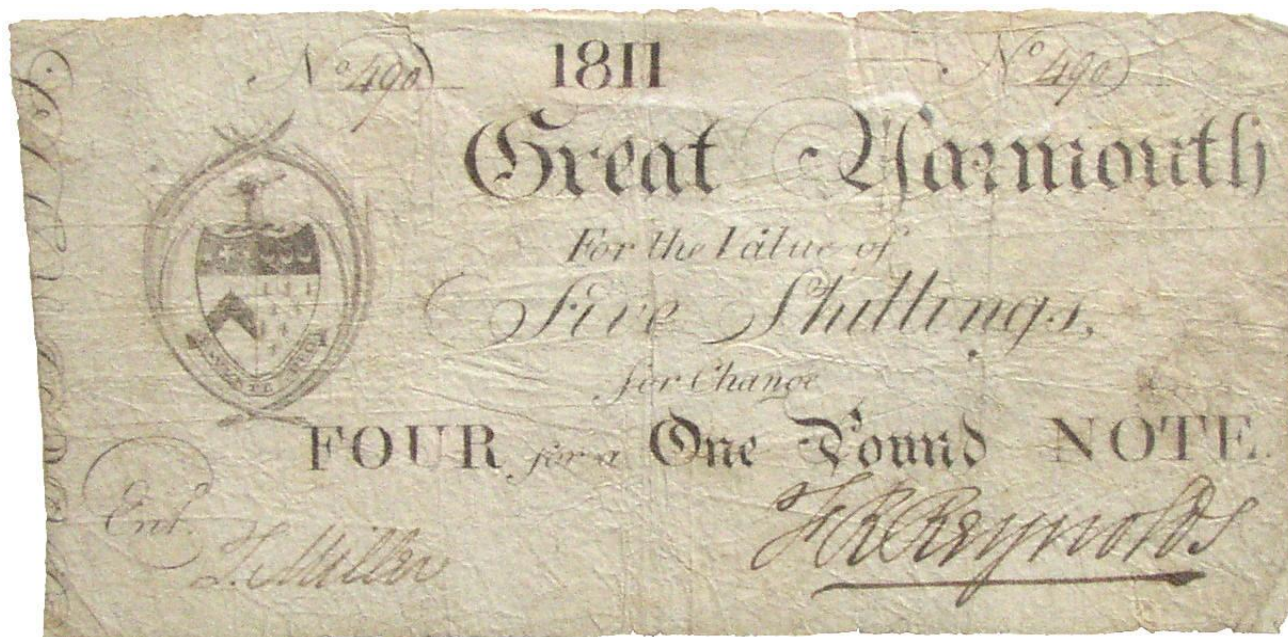 No 490 1811 No 490
Great Yarmouth
For the Value of
Five Shillings,
for Change
FOUR for a One Pound NOTE.
Ent.
T. Miller
F R Reynolds